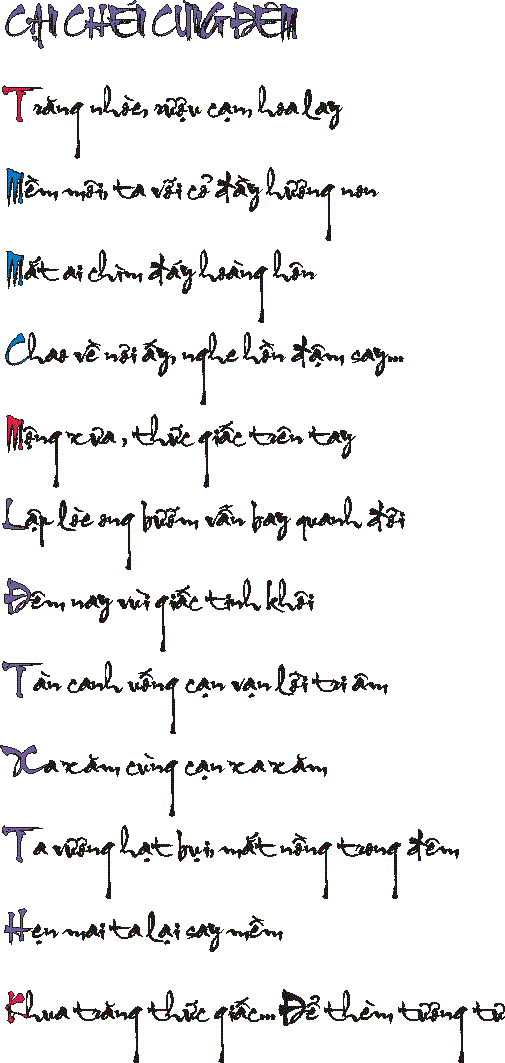 CẠN CHÉN CÙNG ĐÊM
Trăng nhòe, rượu cạm hoa lay
Mềm môi, ta với cỏ đầy hương non
Mắt ai chìm đáy hoàng hôn
Chao về nơi ấy, nghe hồn đậm say...
Mộng xưa, thức giấc trên tay
Lập lòe ong bướm vẫn bay quanh đồi
Đêm nay vùi giấc tinh khôi
Tàn canh uống cạn vạn lời tri âm
Xa xăm cùng cạn xa xăm
Ta vương hạt bụi, mắt nồng trong đêm
Hẹn mai ta lại say mềm
Khua trăng thức giấc... Để thèm tương tư